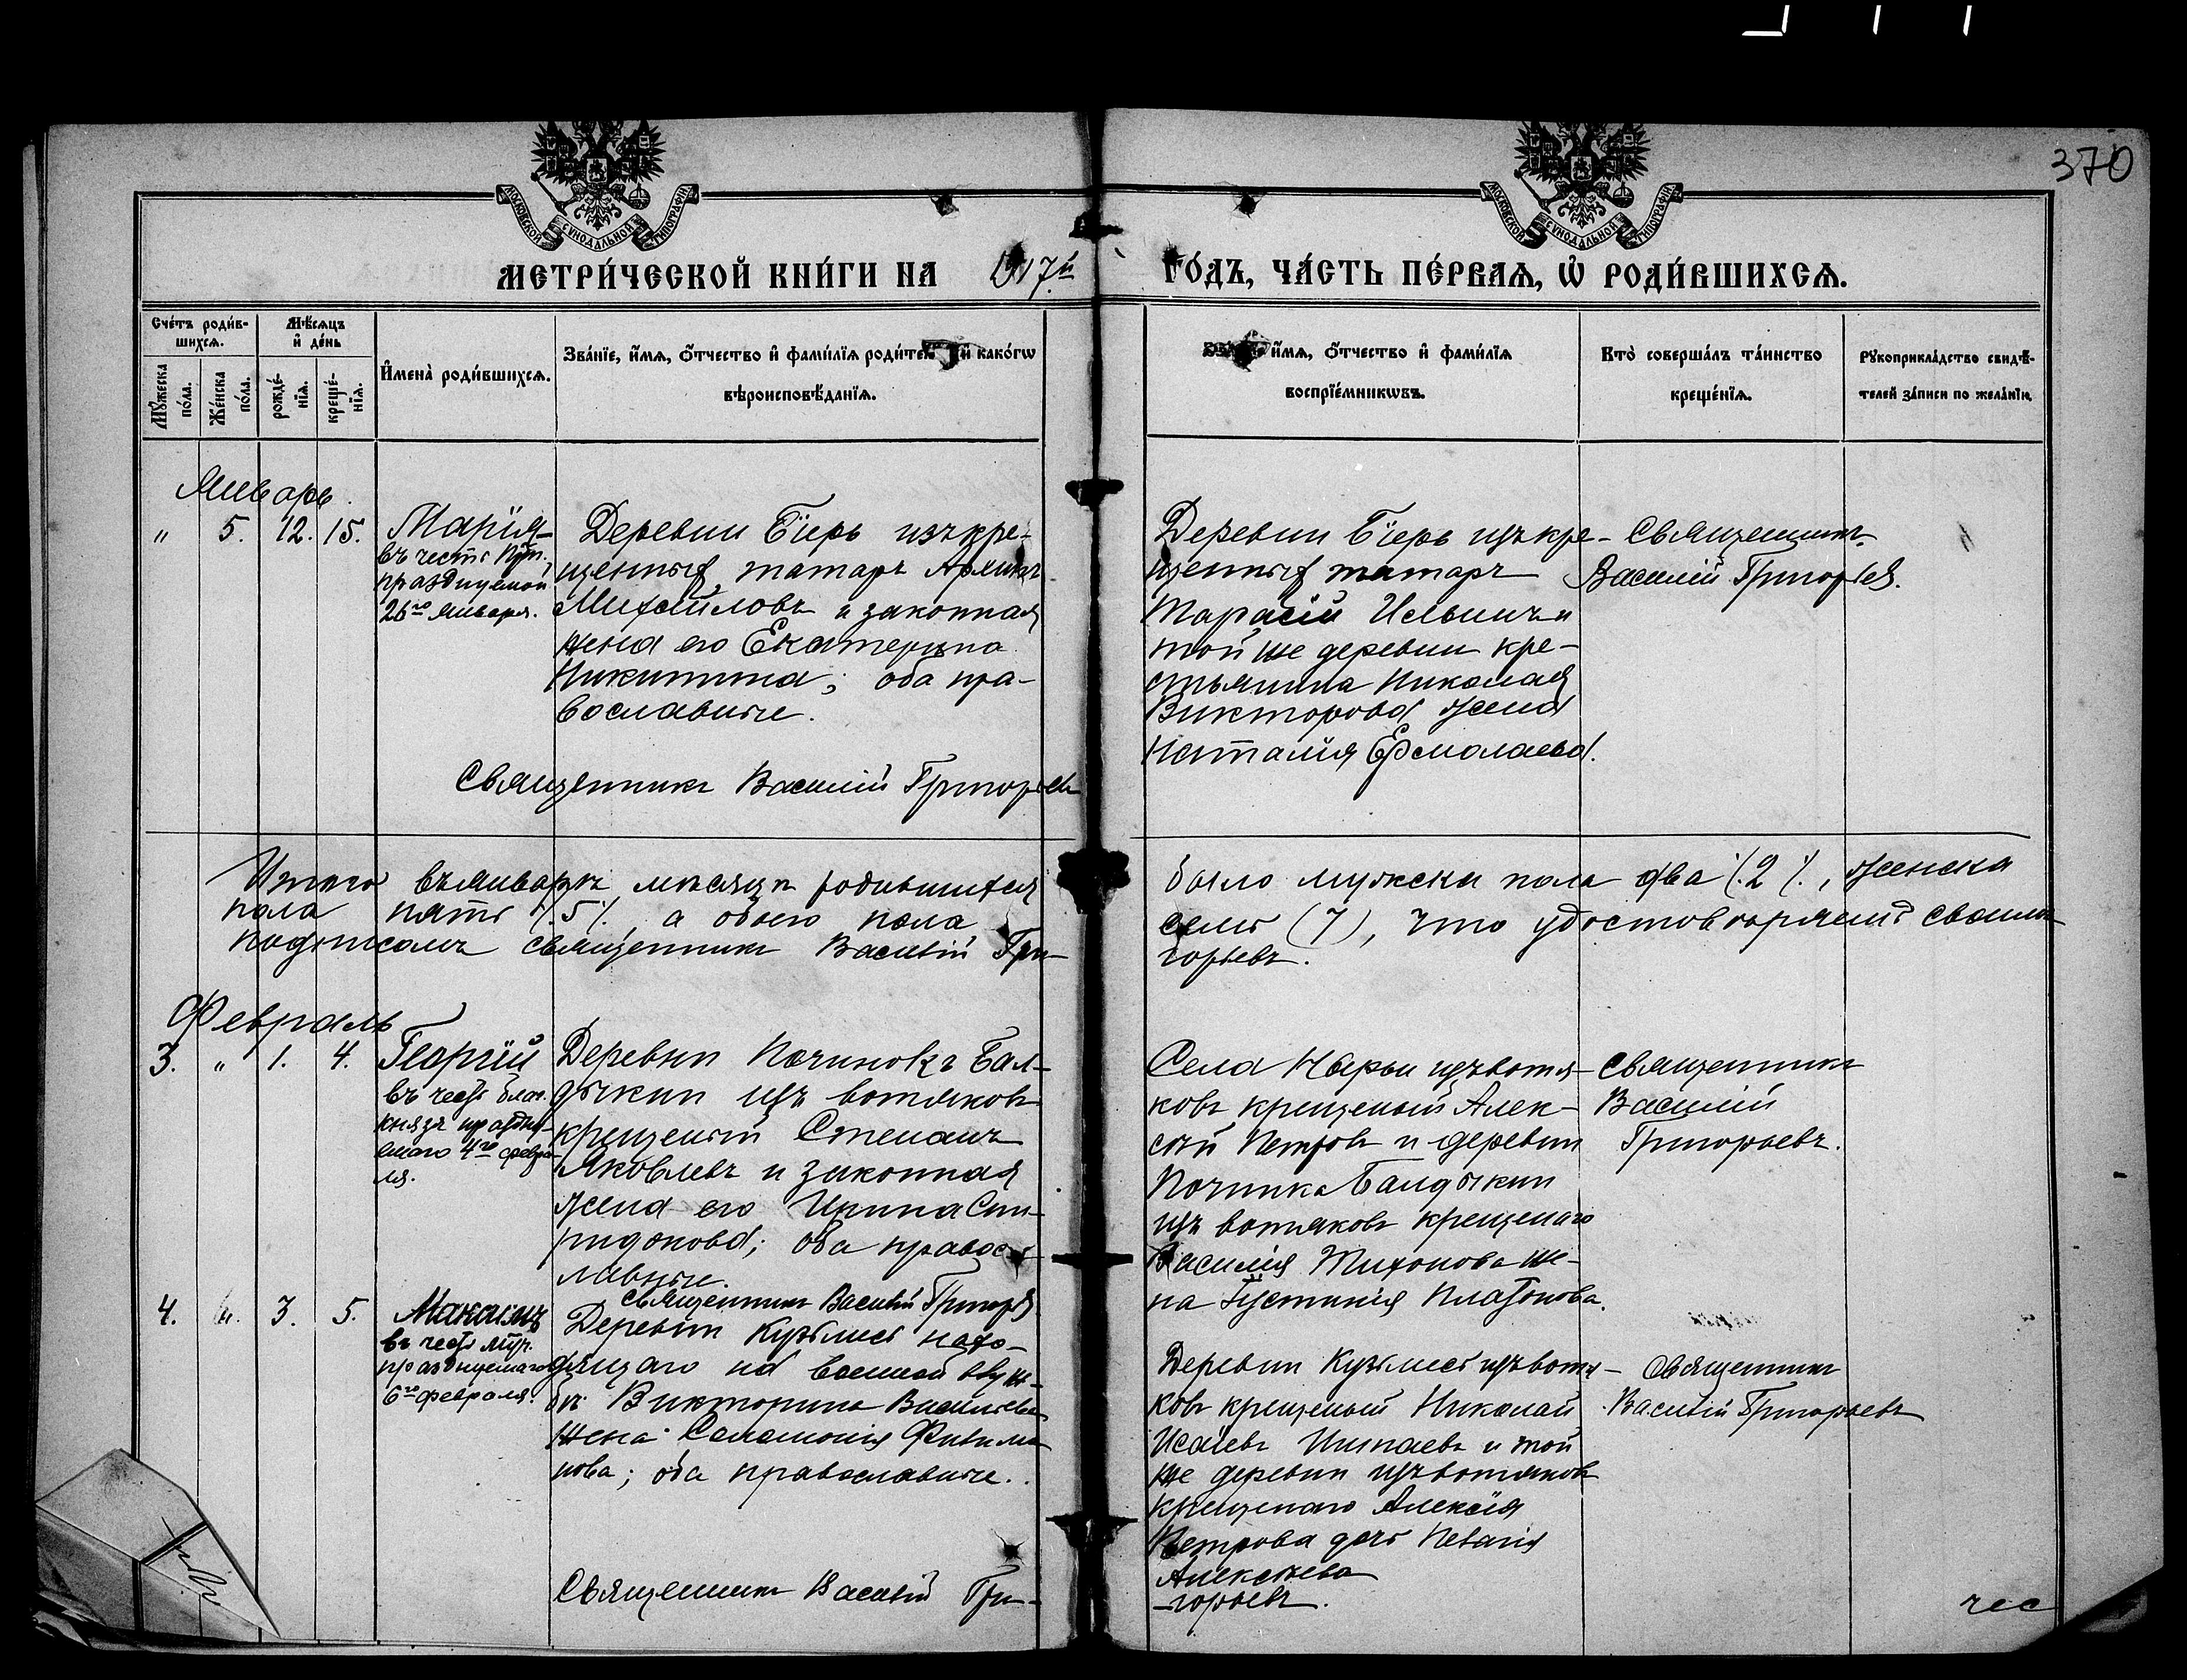 370
МОСКОВСКОЙ СУНОДАЛЬНОЙ ТИПОГРАФІИ
МОСКОВСКОЙ СУНОДАЛЬНОЙ ТИПОГРАФІИ
МЕТРИ́ЧЕСКОЙ КНИ́ГИ НА 1917й
ГО́ДЪ, ЧА́СТЬ ПЕ́РВАѦ, Ѡ҆ РОДИ́ВШИХСѦ.
Сче́тъ роди́в-
шихсѧ.
Мѣ́сѧцъ
и҆ де́нь
Мꙋ́жеска
по́ла.
Же́нска
по́ла.
рожде́-
нїѧ.
креще́-
нїѧ.
И҆мена̀ роди́вшихсѧ.
Зва́нїе, и҆́мѧ, ѻ҆́тчество и҆ фами́лїѧ роди́тел и҆ како́гѡ
вѣроисповѣ́данїѧ.
и҆́мѧ, ѻ҆́тчество и҆ фами́лїѧ
воспрїе́мникѡвъ.
Кто̀ соверша́лъ та́инство
креще́нїѧ.
Рꙋкоприкла́дство свидѣ́-
телей за́писи по жела́нїю.
Январь.
" 5. 12. 15.
Марія
въ честь Прп.
празднуемой
26го января.
Деревни Біерь изъ кре-
щеныхъ татаръ Архипъ
Михайловъ и законная
жена его Екатерина
Никитина; оба пра-
вославные.
Священникъ Василій Григорьевъ
Деревни Біерь изъ кре-
щеныхъ татаръ
Тарасій Ильинъ и
той же деревни кре-
стьянина Николая
Викторова жена
Наталія Ермолаева.
Священникъ
Василій Григорьев.
Итого въ январѣ мѣсяцѣ родившихся
было мужеска пола два (2), женска
пола пять (5), а обоего пола
семь (7), что удостовѣряемъ своимъ
подписомъ священникъ Василій Гри-
горьевъ.
Февраль
3. " 1. 4.
Георгій
въ честь благ.
князя праздну-
емаго 4го февра-
ля.
Деревни Починокъ Бал-
дыкии изъ вотяковъ
крещеный Степанъ
Яковлевъ и законная
жена его Ирина Спи-
ридонова; оба правос-
лавные.
Священникъ Василій Григорьев
Села Нырьи изъ вотя-
ковъ крещеный Алек-
сѣй Петровъ и деревни
Починка Балдыкии
изъ вотяковъ крещенаго
Василія Тихонова же-
на Іустинія Платонова.
Священникъ
Василій
Григорьевъ.
4. 3. 5.
Максимъ
въ честь муч.
празднуемаго
6го февраля.
Деревни Кузьмесь нахо-
дящаго на военной служ-
бѣ Викторина Васильева
жена Саломонія Филимо-
нова; оба православные.
Священникъ Василій Гри-
Деревни Кузьмесь изъ вотя-
ковъ крещеный Николай
Исаевъ и той
же деревни изъ вотяковъ
крещенаго Алексія
Петрова дочь Пелагія
Алексѣева
-горьевъ.
Священникъ
Василій Григорьевъ
чес